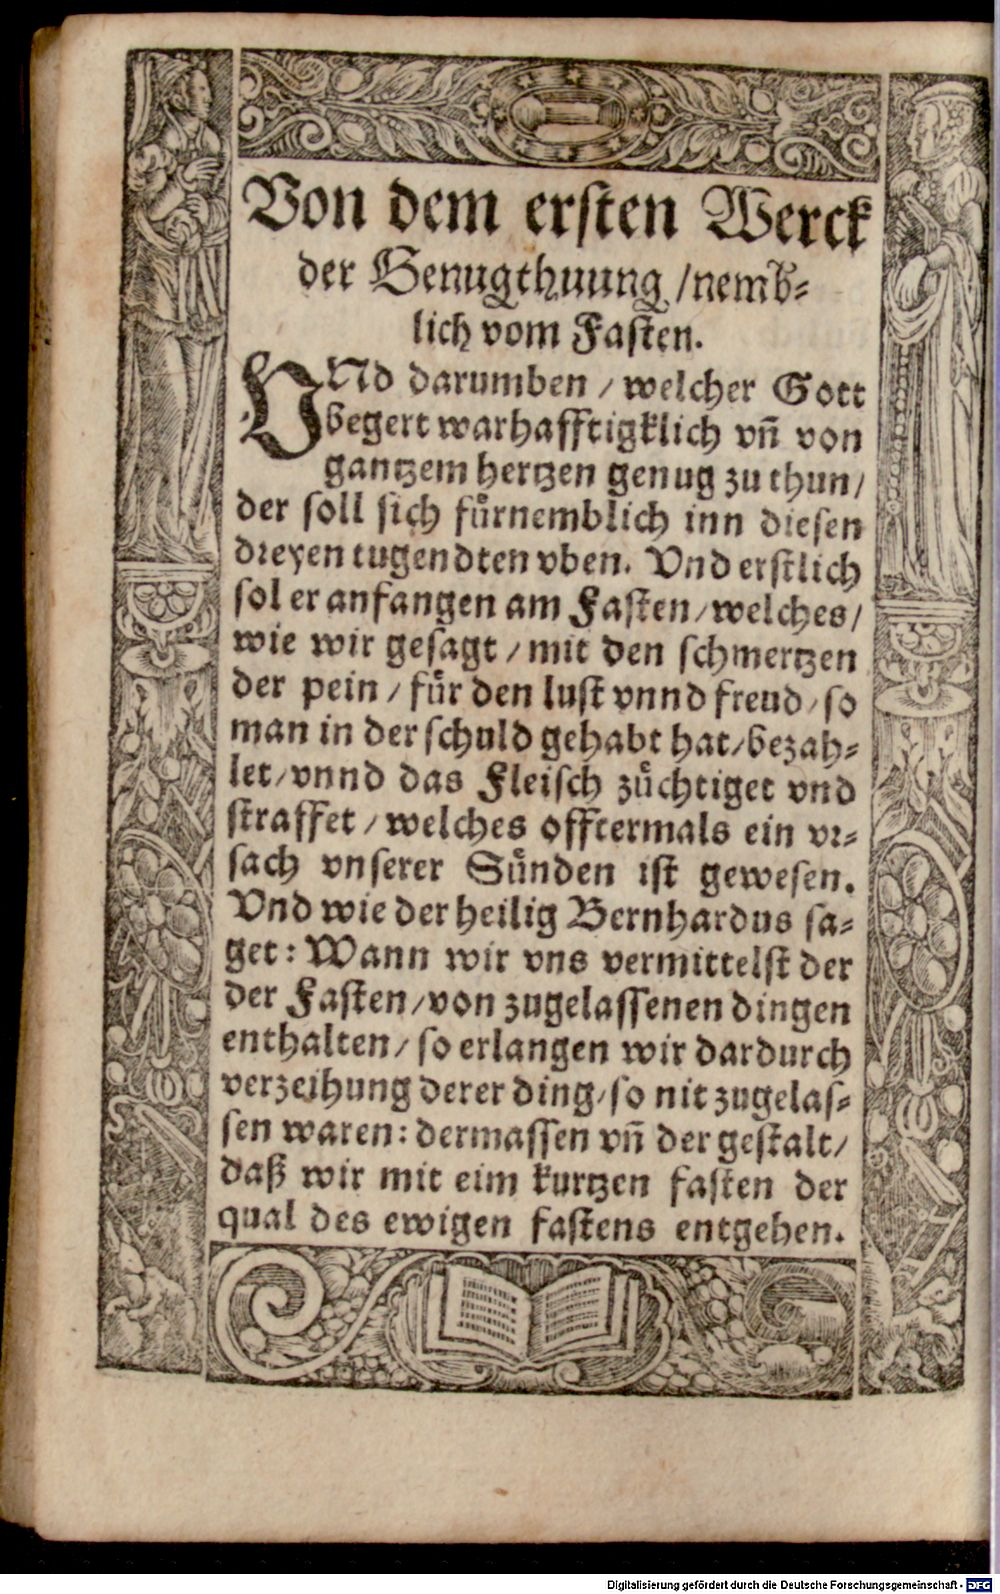 Von dem ersten Werck
der Genugthuung / nemb⸗
lich vom Fasten.
VNd darumben / welcher Gott
begert warhafftigklich vñ von
gantzem hertzen genug zu thun /
der soll sich fuͤrnemblich inn diesen
dreyen tugendten vben. Vnd erstlich
sol er anfangen am Fasten / welches /
wie wir gesagt / mit den schmertzen
der pein / fuͤr den lust vnnd freud / so
man in der schuld gehabt hat / bezah⸗
let / vnnd das Fleisch zuͤchtiget vnd
straffet / welches offtermals ein vr⸗
sach vnserer Suͤnden ist gewesen.
Vnd wie der heilig Bernhardus sa⸗
get: Wann wir vns vermittelst der
der Fasten / von zugelassenen dingen
enthalten / so erlangen wir dardurch
verzeihung derer ding / so nit zugelas⸗
sen waren: dermassen vñ der gestalt /
daß wir mit eim kurtzen fasten der
qual des ewigen fastens entgehen.
Digitalisierung gefördert durch die Deutsche Forschungsgemeinschaft - DFG